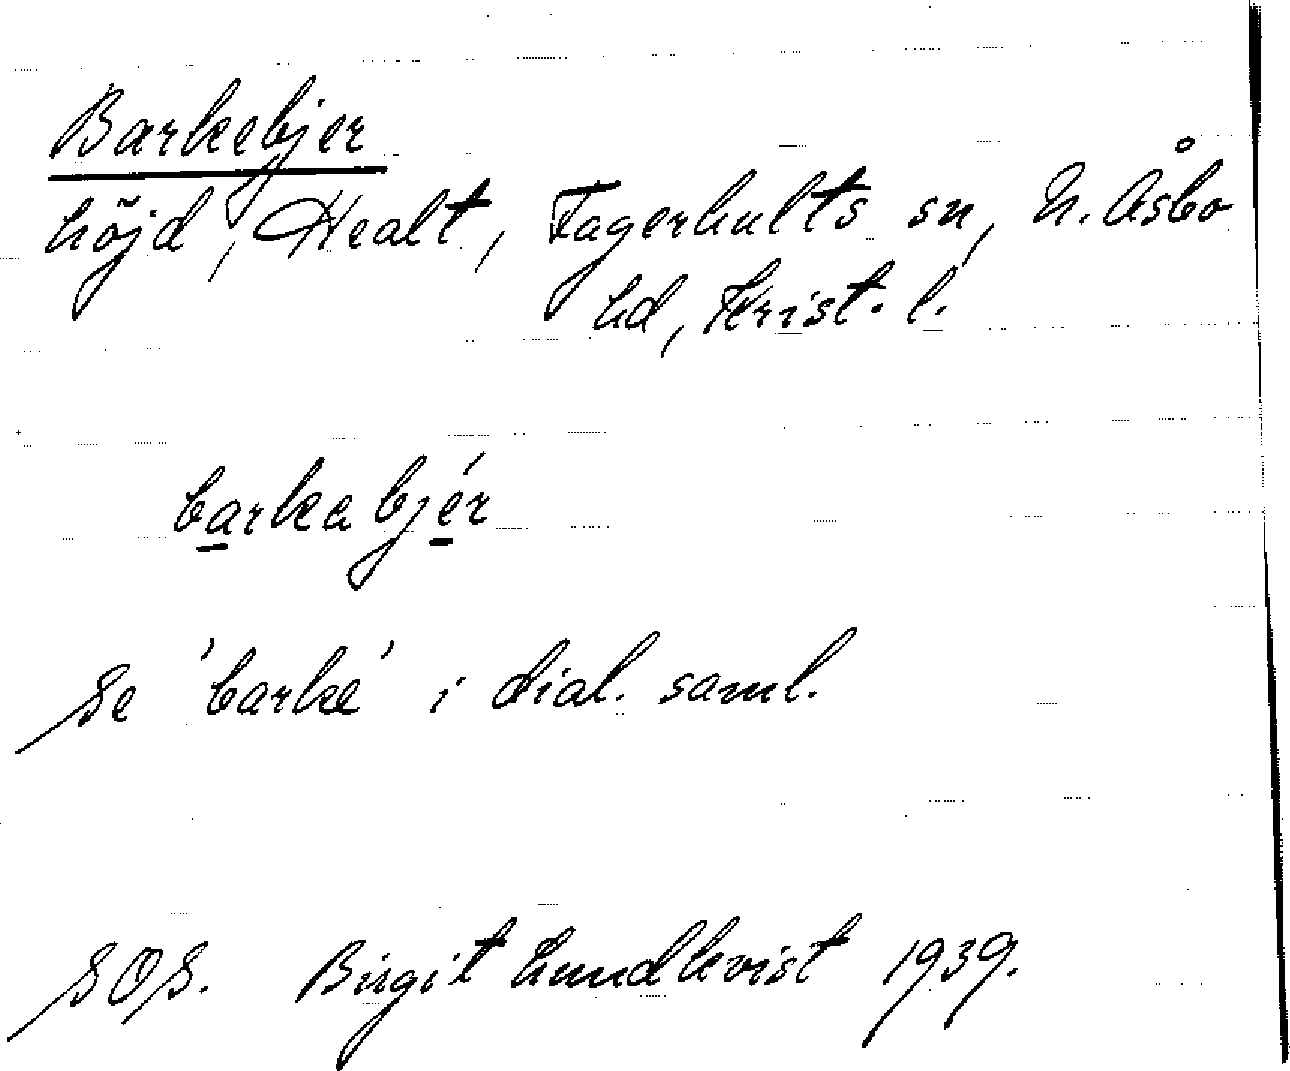 Barkebjer
höjd, Healt, Fagerhults sn, N. Åsbo
hd, Krist. l.
barkabjér
Se 'barke' i dial. saml.
SOS. Birgit Lundkvist 1939.